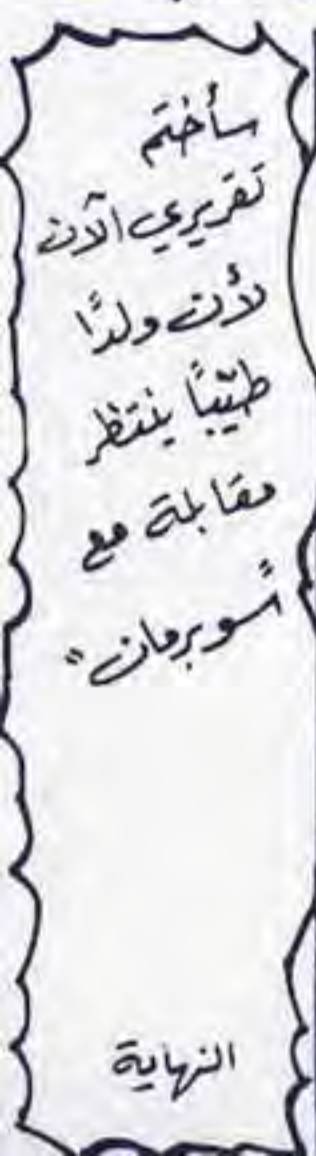 سأختم
تقريري الآن
لأن ولدًا
طيّبًا ينتظر
مقابلة مع
"سوبرمان"
النهاية